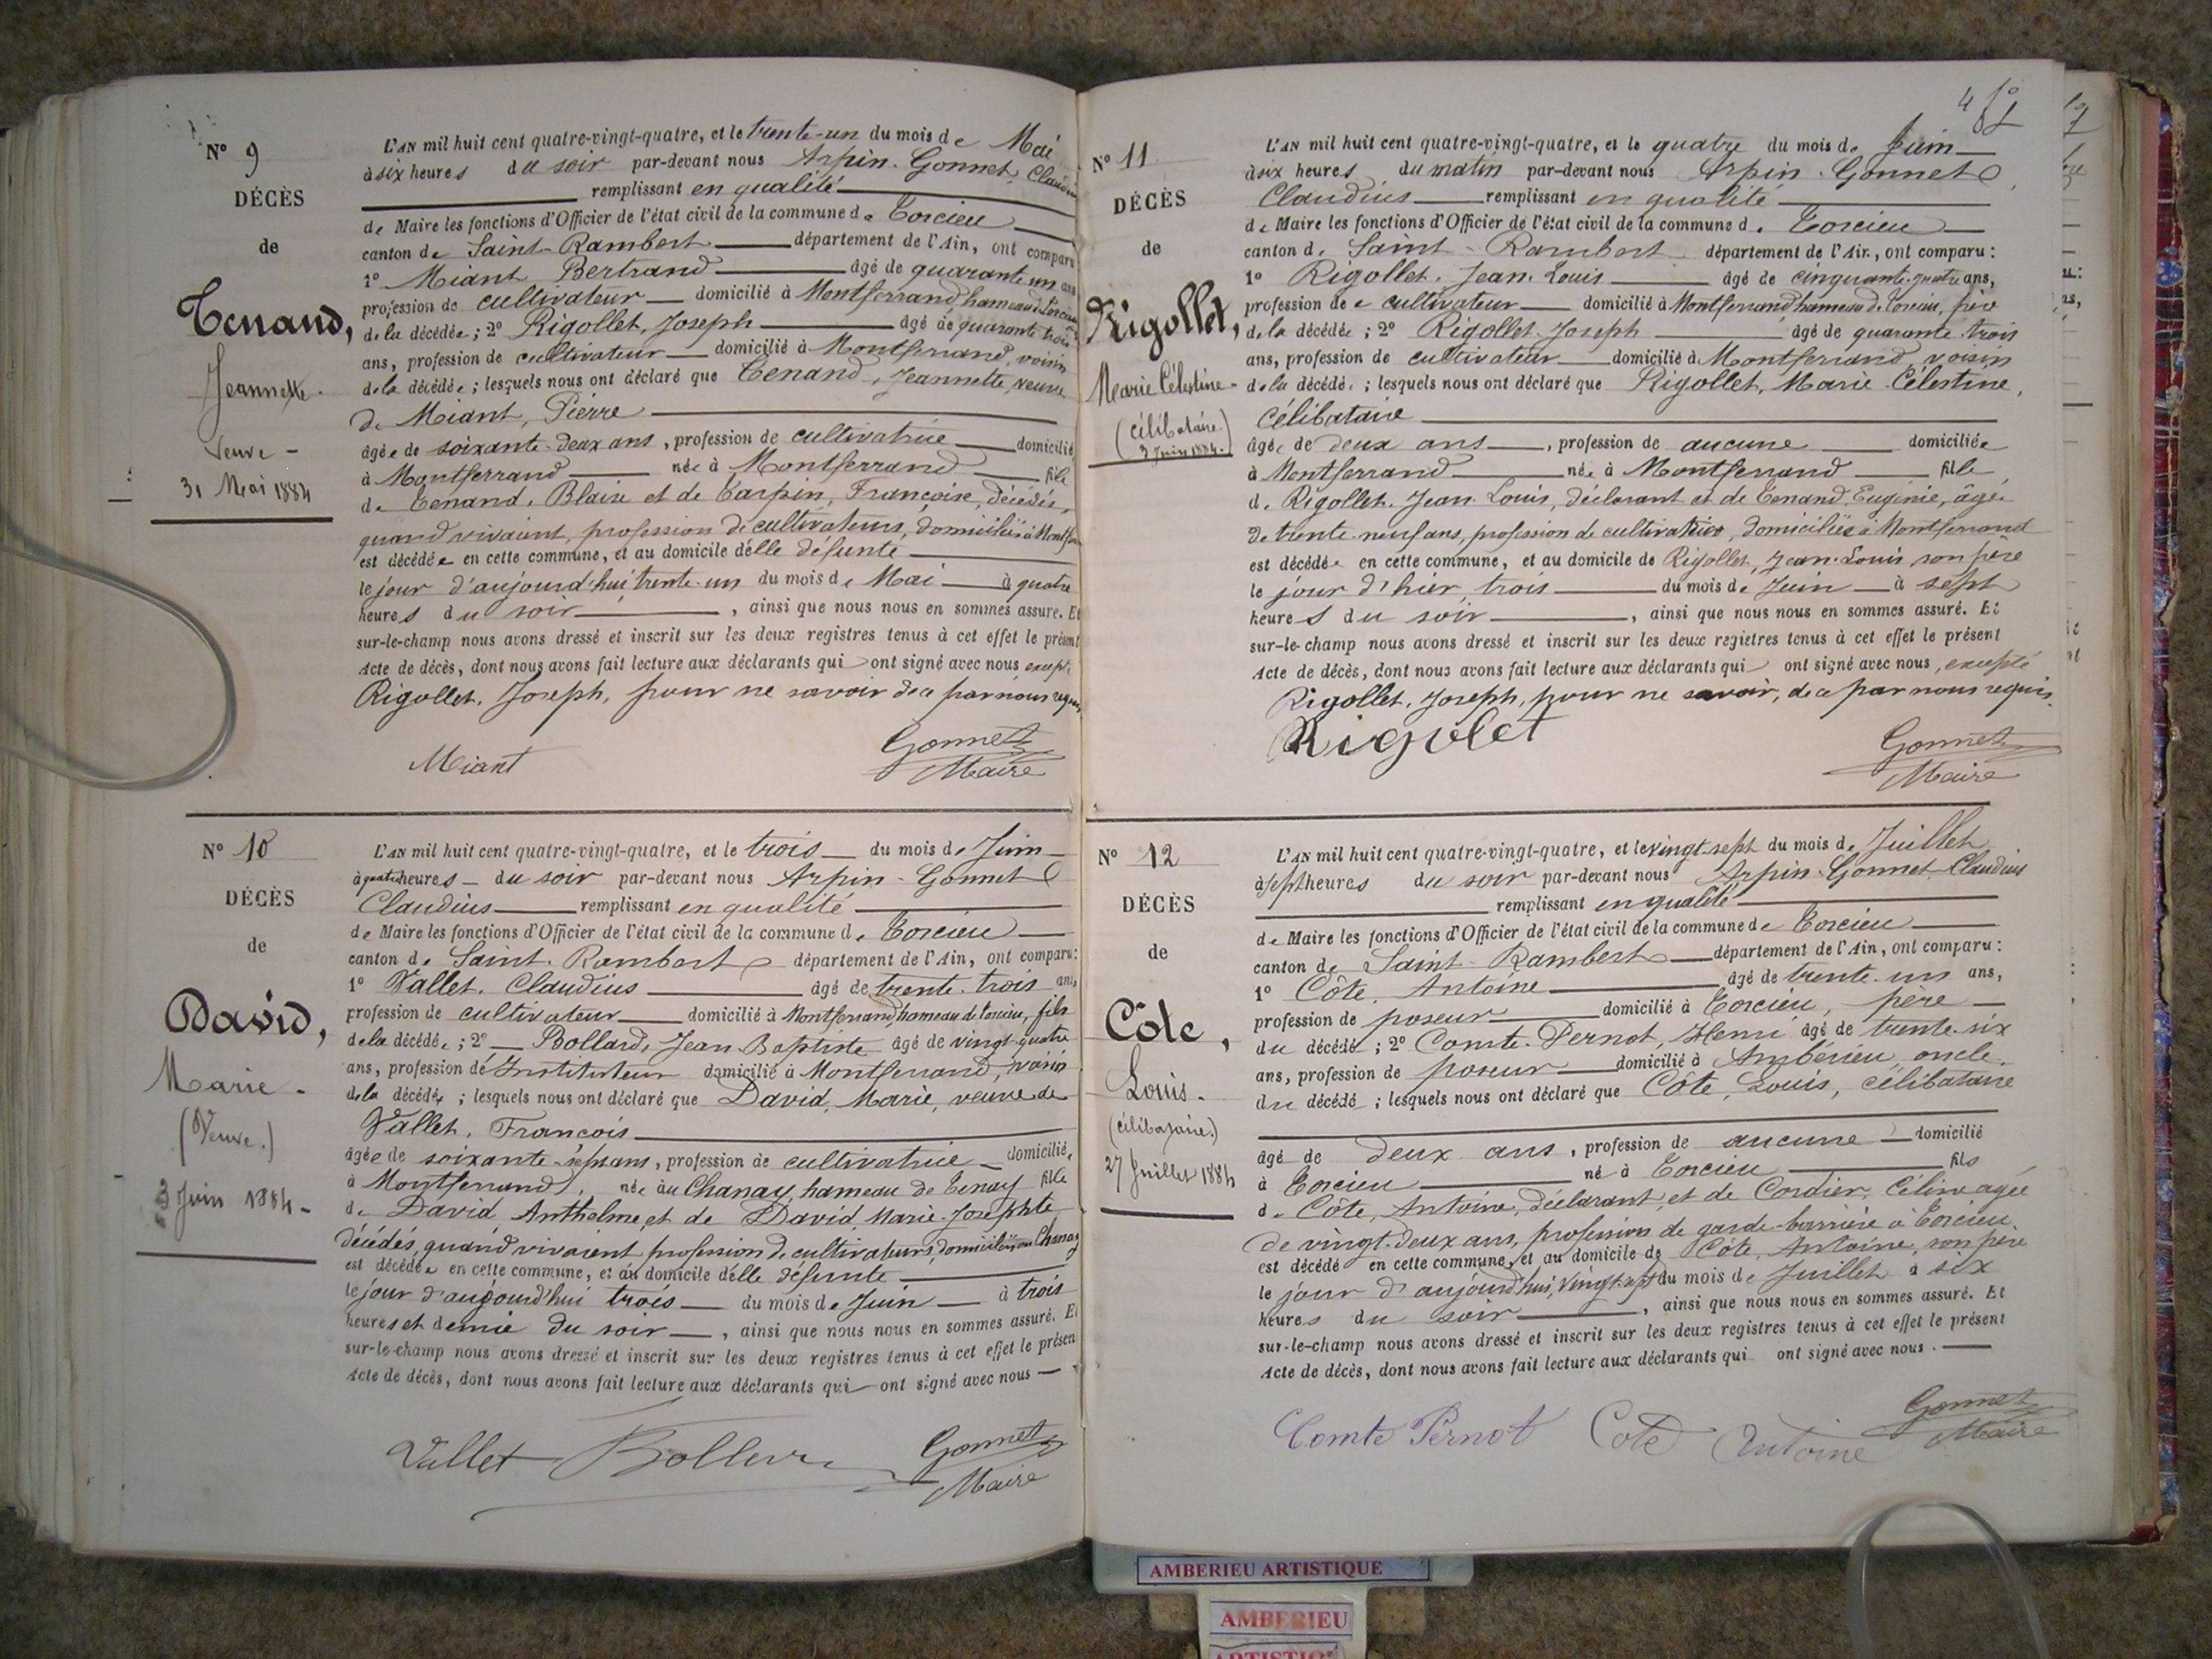 N° 9
DÉCÈS
de
Tenand,
Jeannette.
Veuve -
31 Mai 1884
L'AN mil huit cent quatre-vingt-quatre, et le trente-un du mois de Mai
à six heures du soir par-devant nous Arpin-Gonnet
remplissant en qualité
de Maire les fonctions d'Officier de l'état civil de la commune de Torcieu
canton de Saint-Rambert département de l'Ain, ont comparu
1° Miant Bertrand âgé de quarante-un ans
profession de cultivateur domicilié à Montferrand hameau de Torcieu
de la décédée ; 2° Rigollet, Joseph âgé de quarante trois
ans, profession de cultivateur domicilié à Montferrand, voisin
de la décédée ; lesquels nous ont déclaré que Tenand, Jeannette, veuve
de Miant, Pierre
âgée de soixante-deux ans, profession de cultivatrice domicilié
à Montferrand née à Montferrand fille
de Tenand, Blaise et de Carpin, Françoise, décédés,
quand vivaient, profession de cultivateurs, domiciliés à
est décédée en cette commune, et au domicile d'elle défunte
le jour d'aujourd'hui, trente-un du mois de Mai à quatre
heures du soir, ainsi que nous nous en sommes assuré. Et
sur-le-champ nous avons dressé et inscrit sur les deux registres tenus à cet effet le présent
Acte de décès, dont nous avons fait lecture aux déclarants qui ont signé avec nous
Rigollet, Joseph, pour ne savoir de ce par nous requis
Miant Gonnet
Maire
N° 10
DÉCÈS
de
David,
Marie -
(Veuve.)
3 Juin 1884 -
L'AN mil huit cent quatre-vingt-quatre, et le trois du mois de Juin
à quatre heures du soir par-devant nous Arpin-Gonnet
Claudius remplissant en qualité
de Maire les fonctions d'Officier de l'état civil de la commune de Torcieu
canton de Saint-Rambert département de l'Ain, ont comparu:
1° Vallet, Claudius âgé de trente-trois ans,
profession de cultivateur domicilié à Montferrand, hameau de Torcieu, fils
de la décédée ; 2° Bollard, Jean Baptiste âgé de vingt-quatre
ans, profession de Instituteur domicilié à Montferrand, voisin
de la décédée ; lesquels nous ont déclaré que David, Marie, veuve de
Vallet, François
âgée de soixante-sept ans, profession de cultivatrice domiciliée,
à Montferrand, née au Chanay, hameau de Tenay fille
de David Anthelme, et de David Marie-Josephte
décédés, quand vivaient profession de cultivateurs, domiciliés au Chanay
est décédée en cette commune, et au domicile d'elle défunte
le jour d'aujourd'hui trois du mois de Juin à trois
heures et demie du soir, ainsi que nous nous en sommes assuré. Et
sur-le-champ nous avons dressé et inscrit sur les deux registres tenus à cet effet le présen
Acte de décès, dont nous avons fait lecture aux déclarants qui ont signé avec nous
Vallet Gonnet
Maire
4
N° 11
DÉCÈS
de
Rigollet,
Marie Célestine -
(Célibataire.)
3 Juin 1884.
L'AN mil huit cent quatre-vingt-quatre, et le quatre du mois de Juin
à six heures du matin par-devant nous Arpin-Gonnet
Claudius remplissant en qualité
de Maire les fonctions d'Officier de l'état civil de la commune de Torcieu
canton de Saint-Rambert département de l'Ain, ont comparu :
1° Rigollet, Jean-Louis âgé de cinquante-quatre ans,
profession de cultivateur domicilié à Montferrand hameau de Torcieu, père
de la décédée ; 2° Rigollet Joseph âgé de quarante-trois
ans, profession de cultivateur domicilié à Montferrand voisin
de la décédée ; lesquels nous ont déclaré que Rigollet, Marie-Célestine,
Célibataire
âgée de deux ans, profession de aucune domiciliée
à Montferrand née à Montferrand fille
de Rigollet, Jean-Louis, déclarant et de Tenand Eugénie, âgée
de trente-neuf ans, profession de cultivatrice, domiciliée à Montferrand
est décédée en cette commune, et au domicile de Rigollet, Jean-Louis son père
le jour d'hier, trois du mois de Juin à sept
heures du soir, ainsi que nous nous en sommes assuré. Et
sur-le-champ nous avons dressé et inscrit sur les deux registres tenus à cet effet le présent
Acte de décès, dont nous avons fait lecture aux déclarants qui ont signé avec nous, excepté
Rigollet, Joseph, pour ne savoir, de ce par nous requis.
Rigolet Gonnet
Maire
N° 12
DÉCÈS
de
Côte,
Louis -
(célibataire.)
27 Juillet 1884
L'AN mil huit cent quatre-vingt-quatre, et le vingt-sept du mois de Juillet
à sept heures du soir par-devant nous Arpin-Gonnet Claudius
remplissant en qualité
de Maire les fonctions d'Officier de l'état civil de la commune de Torcieu
canton de Saint-Rambert département de l'Ain, ont comparu :
1° Côte, Antoine âgé de trente-un ans,
profession de poseur domicilié à Torcieu, père
du décédé ; 2° Comte-Pernot, Henri âgé de trente-six
ans, profession de poseur domicilié à Ambérieu oncle
du décédé ; lesquels nous ont déclaré que Côte, Louis, célibataire
âgé de deux ans, profession de aucune domicilié
à Torcieu né à Torcieu fils
de Côte, Antoine, déclarant, et de Cordier, Céline âgée
de vingt-deux ans, profession de garde-barrière à Torcieu
est décédé en cette commune, et au domicile de Côte, Antoine, son père
le jour d'aujourd'hui, vingt-sept du mois de Juillet à six
heures du soir, ainsi que nous nous en sommes assuré. Et
sur-le-champ nous avons dressé et inscrit sur les deux registres tenus à cet effet le présent
Acte de décès, dont nous avons fait lecture aux déclarants qui ont signé avec nous.
Comte Pernot Cote Antoine Gonnet
Maire
AMBERIEU ARTISTIQUE
AMBERIEU
ARTISTIQUE